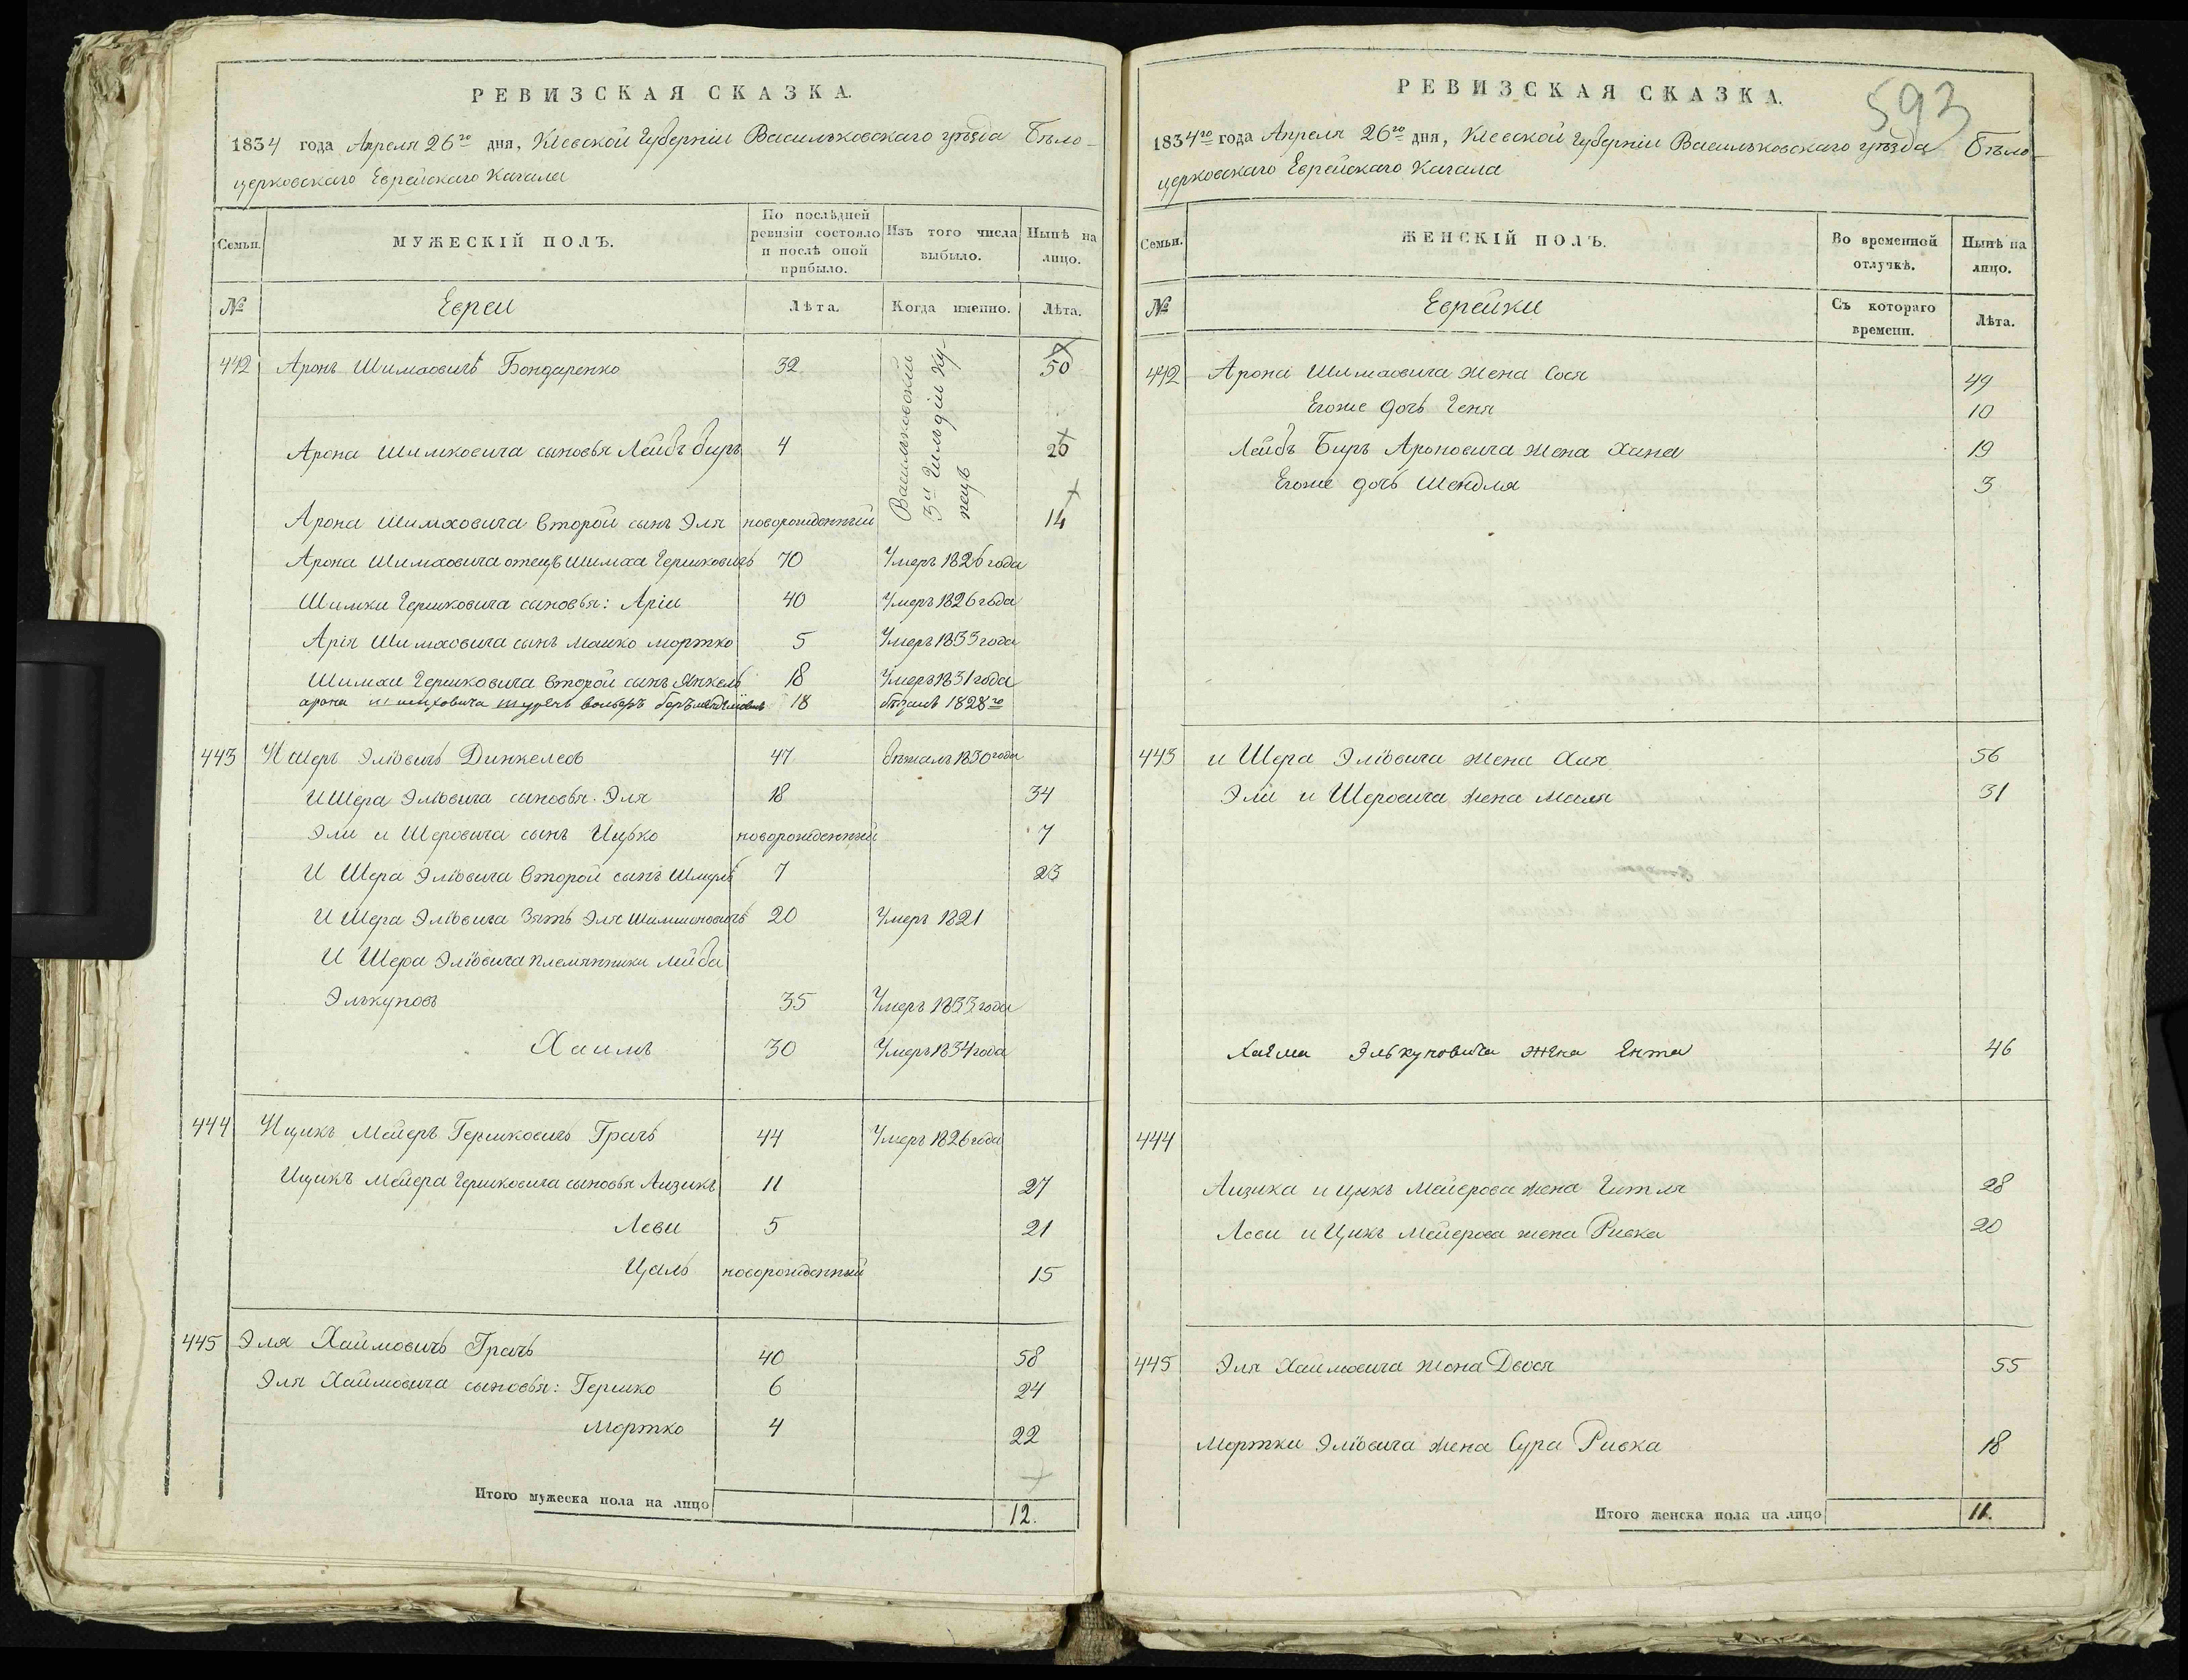 РЕВИЗСКАЯ СКАЗКА.
1834 года Апреля 26го дня, Кіевской Губерніи Васильковскаго уѣзда Бѣло-
церковскаго Еврейскаго Кагала
Семьи. МУЖЕСКІЙ ПОЛЪ. По послѣдней ревизіи состояло и послѣ оной прибыло. Изъ того числа выбыло. Нынѣ на лицо.
№ Евреи Лѣта. Когда именно. Лѣта.
442 Аронъ Шимховичъ Бондаренко 32 50
Васильковскій
3й Гильдіи Ку-
пецъ
Арона Шимховича сыновья Лейбъ Биръ 4 20
Арона Шимховича второй сынъ Эля новорожденный 14
Арона Шимховича отецъ Шимха Гершковичъ 70 Умеръ 1826 года
Шимхи Гершковича сыновья: Аріи 40 Умеръ 1826 года
Арія Шимховича сынъ Мошко Мортко 5 Умеръ 1833 года
Шимхи Гершковича второй сынъ Янкель 18 Умеръ 1831 года
арона шимховича шуринъ 18 1828го
443 Ишеръ Эліовичъ Динкелевъ 47 1830 года
И Шера Эліовича сыновья. Эля 18 34
Эли и Шеровича сынъ Ицько новорожденный 7
И Шера Эліовича второй сынъ Шмуль 7 23
И Шера Эліовича Зять Эля Шимшоновичъ 20 Умеръ 1821
И Шера Эліовича племянники Лейба
Элькуновъ 35 Умеръ 1833 года
Хаимъ 30 Умеръ 1834 года
444 Ицикъ Мейеръ Гершковичъ Грачъ 44 Умеръ 1826 года
Ицикъ Мейера Гершковича сыновья Аизикъ 11 27
Леви 5 21
Цаль новорожденный 15
445 Эля Хаимовичъ Грачъ 40 58
Эля Хаимовича сыновья: Гершко 6 24
Мортко 4 22
Итого мужеска пола на лицо 12.
РЕВИЗСКАЯ СКАЗКА.
593
1834го года Апреля 26го дня, Кіевской Губерніи Васильковскаго уѣзда Бѣло-
церковскаго Еврейскаго Кагала
Семьи. ЖЕНСКІЙ ПОЛЪ. Во временной отлучкѣ. Нынѣ на лицо.
№ Еврейки Съ котораго времени. Лѣта.
442 Арона Шимховича жена Сося 49
Егоже дочь Геня 10
Лейбъ Биръ Ароновича жена Хана 19
Егоже дочь Шендля 3
443 и Шера Эліовича жена Хая 56
Эли и Шеровича жена Маля 31
Хаима Элькуновича жена Ента 46
444
Аизика и Цыкъ Мейерова жена Гитля 28
Леви и Цикъ Мейерова жена Ривка 20
445 Эля Хаимовича жена Двося 55
Мортки Эліовича жена Сура Ривка 18
Итого женска пола на лицо 11.